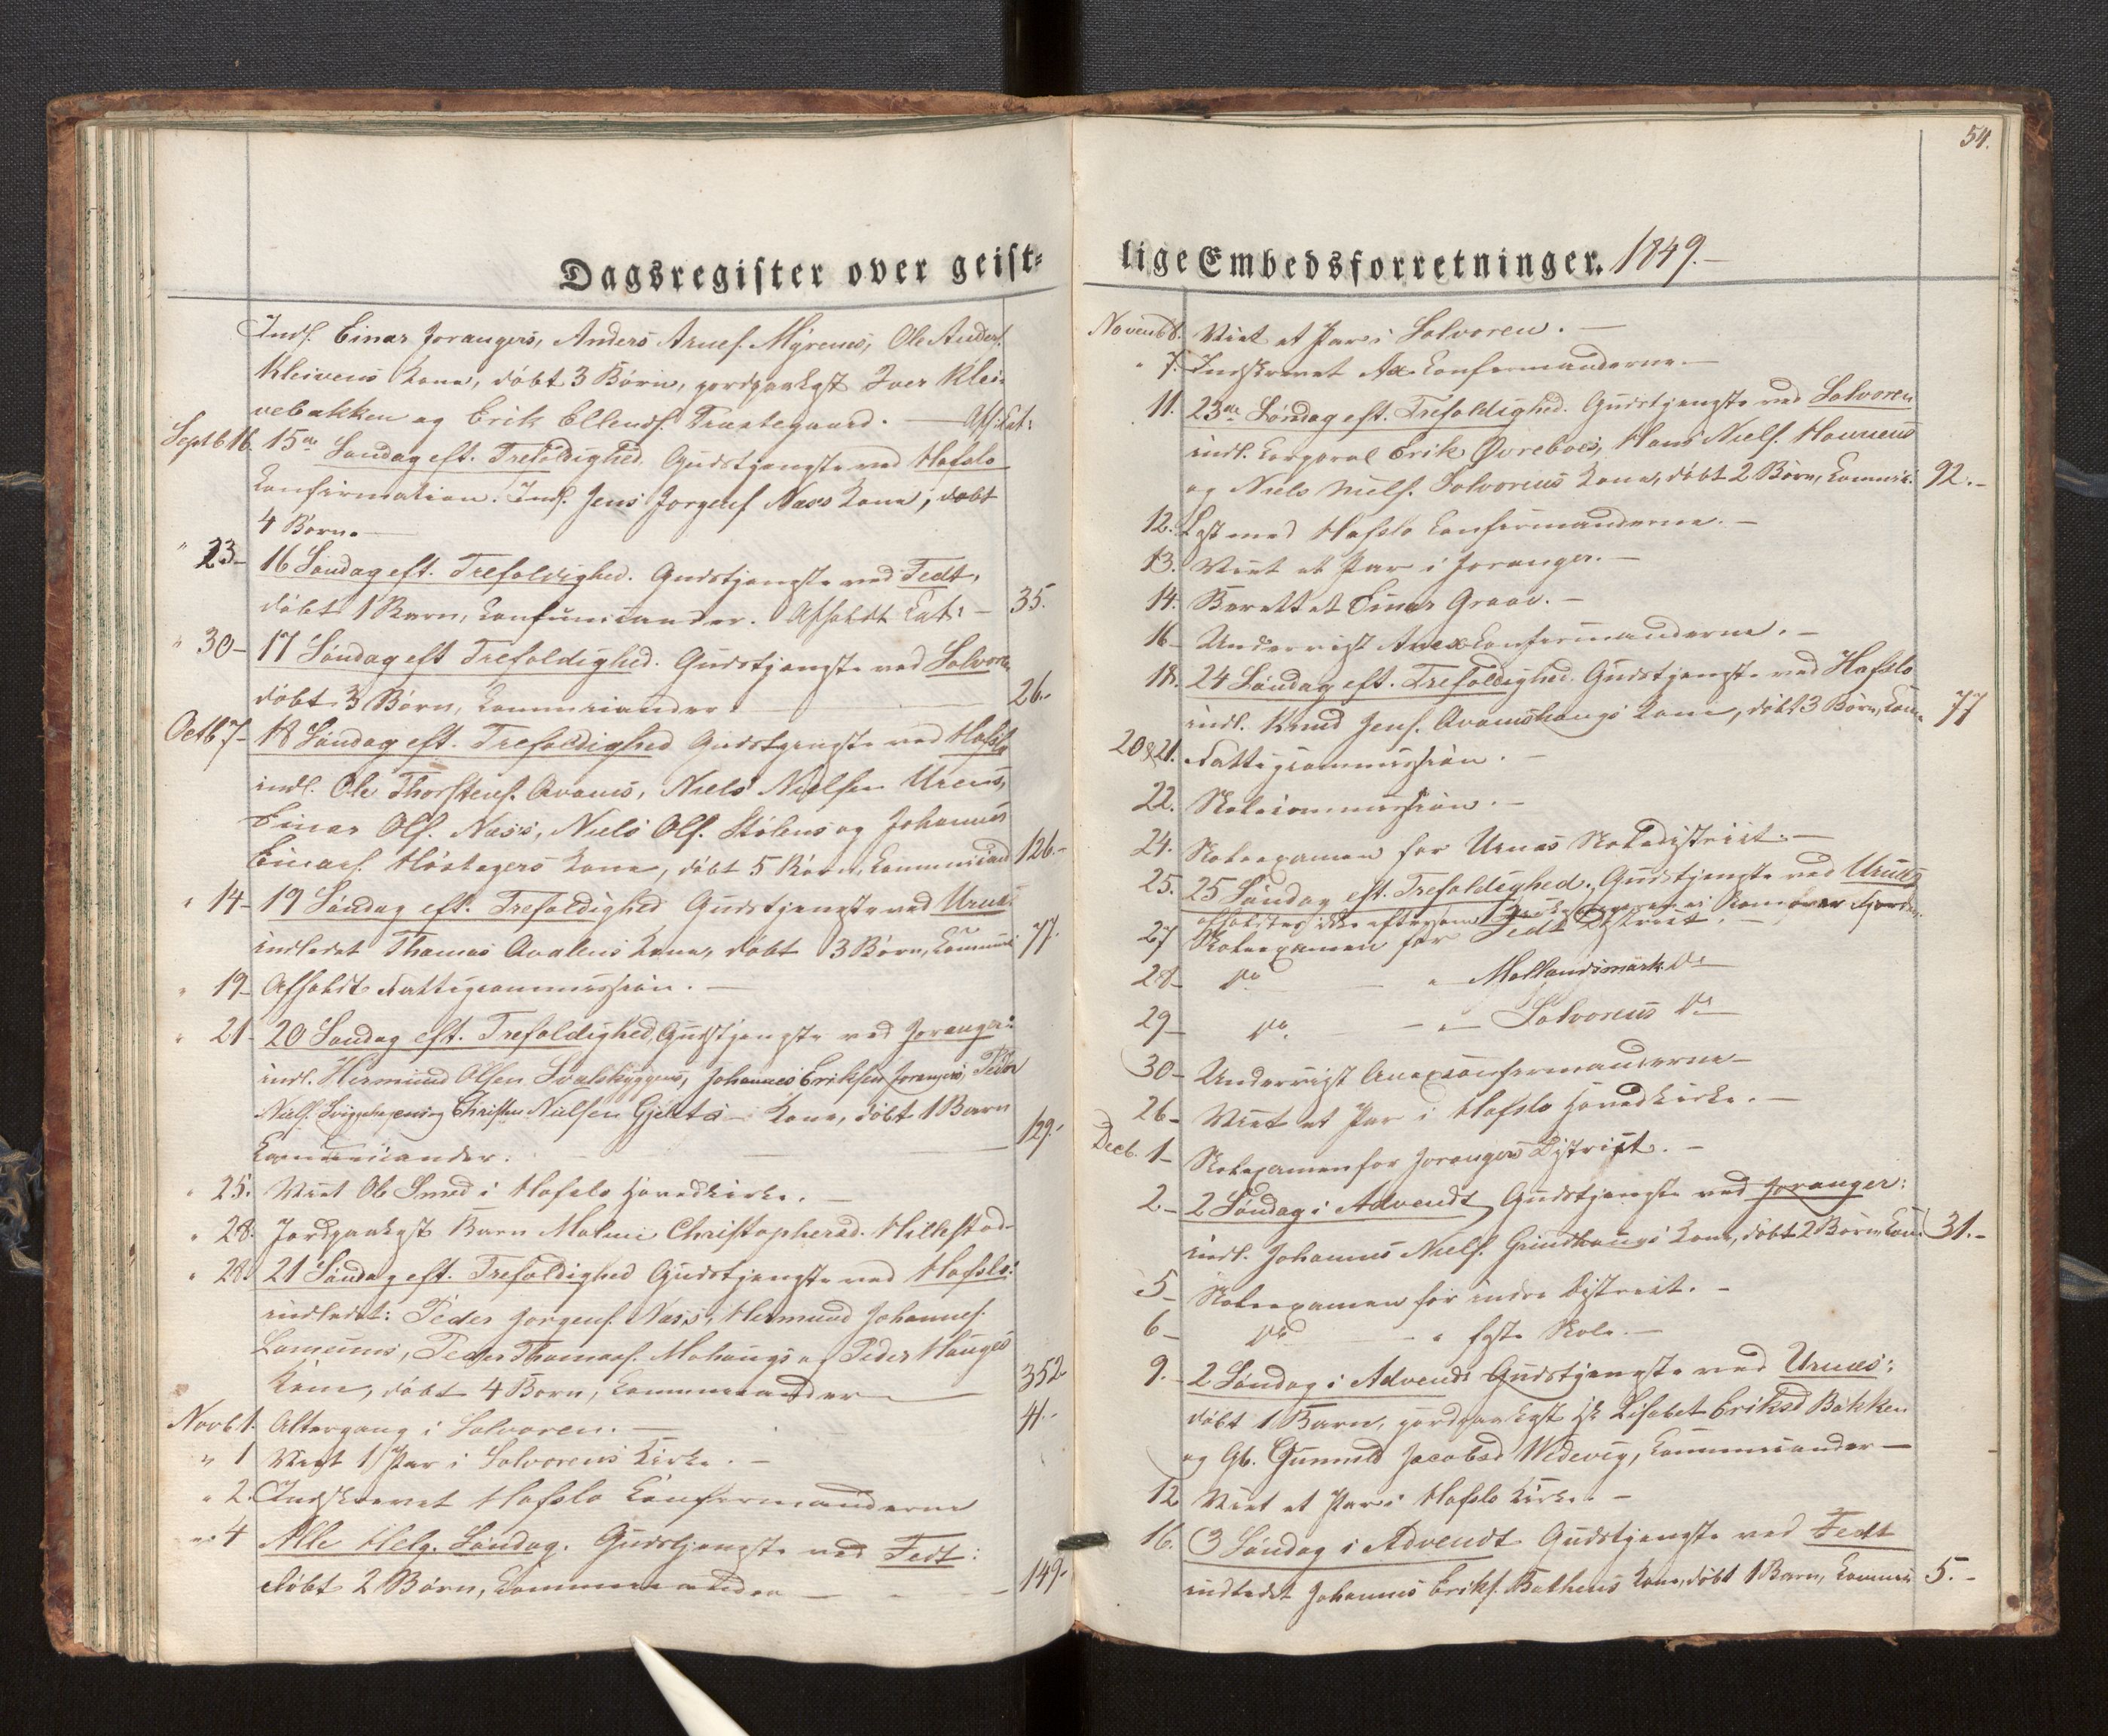 54.
Dagsregister over geist=
lige Embedsforretninger. 1849.-
Indl. Einar Jorangers, Anders Arnes. Myrenes, Ole Anders.
Kleivens Kone, døbt 3 Børn, jordpaakast Iver Klei-
vebakken og Erik Ellends. Præstegaard. — Afh: Cat:
Septb 16. 15de Søndag eft. Trefoldighed. Gudstjeneste ved Hafslo
Confirmation. Indl. Jens Jørgens. Næss Kone, døbt
4 Børn. —
" 23- 16 Søndag eft. Trefoldighed. Gudstjeneste ved Fedt,
døbt 1 Barn, . Afholdt Cat: — 35.
" 30- 17 Søndag eft Trefoldighed. Gudstjeneste ved Solvoren
døbt 3 Børn, Communicander. — 26.-
Octb 7- 18 Søndag eft. Trefoldighed Gudstjeneste ved Hafslo
indl. Ole Thorstens. Avams, Niels Nielsen Urens,
Einar Ols. Næss, Niels Ols. Stølens og Johannes
Einars. Høstagers Kone, døbt 5 Børn, Communicand 126.-
" 14- 19 Søndag eft. Trefoldighed Gudstjeneste ved Urnæs:
indledet Thomas Kone, døbt 3 Børn, Communi 77.
" 19- Afholdt Fattigcommission. —
" 21- 20 Søndag eft. Trefoldighed, Gudstjeneste ved Joranger:
indl. Hermund Olsen Svalskyggens, Johannes Eriksen Jorangers, Peder
Niels. og Christen Nielsen Kone, døbt 1 Barn
Communicander. — 129.-
" 25. Viet Ole Smed i Hafslo Hovedkirke. —
" 28. Jordpaakast Barn Christophersd. Hillestad-
" 28. 21 Søndag eft. Trefoldighed Gudstjeneste ved Hafslo:
indledet: Peder Jørgens. Næss, Hermund Johannes.
Lameuns, Peder Thomas. Mohaugs og Peder Hauges
Kone, døbt 4 Børn, Communicander — 352-
Novb 1. Altergang i Solvoren. — 4.-
" 1 Viet 1 Par i Solvorens Kirke. —
" 2. Indskrevet Hafslo Confirmanderne
" 4 Alle Helg. Søndag. Gudstjeneste ved Fedt:
døbt 2 Børn, Communicander — 149.-
Novemb 6. Viet et Par i Solvoren. —
" 7. Indskrevet Confirmanderne —
11. 23de Søndag eft. Trefoldighed. Gudstjeneste ved Solvoren
indl. Corporal Erik Øvreboes, Hans Niels.
og Niels Niels. Solvorens Kone, døbt 2 Børn, Communic. 92.-
12. Læst med Hafslo Confirmanderne. —
13. Viet et Par i Joranger. —
14. Berettet Einar —
16- Underviist Confirmanderne. —
18. 24 Søndag eft. Trefoldighed. Gudstjeneste ved Hafslo
indl. Knud Jens. Avamshaugs Kone, døbt 3 Børn, Com 77
20 & 21. Fattigcommission. —
22. Skolecommission. —
24. Skoleexamen for Urnæs Skoledistrict. —
25. 25 Søndag eft. Trefoldighed. Gudstjeneste ved Urnæs
afholdtes ikke eftersom kom over Fjorden
27 Skoleexamen for Fedt District. —
28- do — " Mollandsmark. do —
29- do — " — Solvorens do —
30- Underviist Anexconfirmanderne —
26- Viet et Par i Hafslo Hovedkirke. —
Decb. 1- Skoleexamen for Jorangers District. —
2.- 2 Søndag i Advendt, Gudstjeneste ved Joranger:
indl. Johannes Niels. Grindhaugs Kone, døbt 2 Børn, Com 31.-
5- Skoleexamen for indre District. -
6- do — " faste Skole. —
9.- 2 Søndag i Advendt Gudstjeneste ved Urnæs:
døbt 1 Barn, jordpaakast Lisabet Eriksd Bakken
og Gb. Gunnild Jacobsd Wedevig, Communicander — -
12 Viet et Par i Hafslo Kirke. —
16. 3 Søndag i Advendt Gudstjeneste ved Fedt
indledet Johannes Eriks. Kone, døbt 1 Barn, Commun 5.-